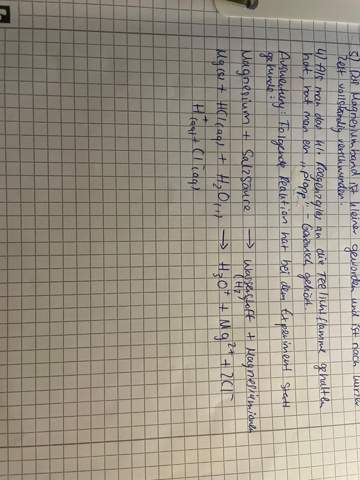 3) Das Magnesiumband ist kleiner geworden und ist nach kurzer
Zeit vollständig verschwunden.
4) Als man das Reagenzglas an die Teelichtflamme gehalten
hat, hat man ein „plopp" - Geräusch gehört.
Auswertung: Folgende Reaktion hat bei dem Experiment statt
gefunden:
Magnesium + Salzsäure → Wasserstoff + Magnesiumionen
(H₂)
Mg(s) + HCl(aq) + H₂O(l) → H₃O⁺ + Mg²⁺ + 2Cl⁻
H⁺(aq) + Cl⁻(aq)